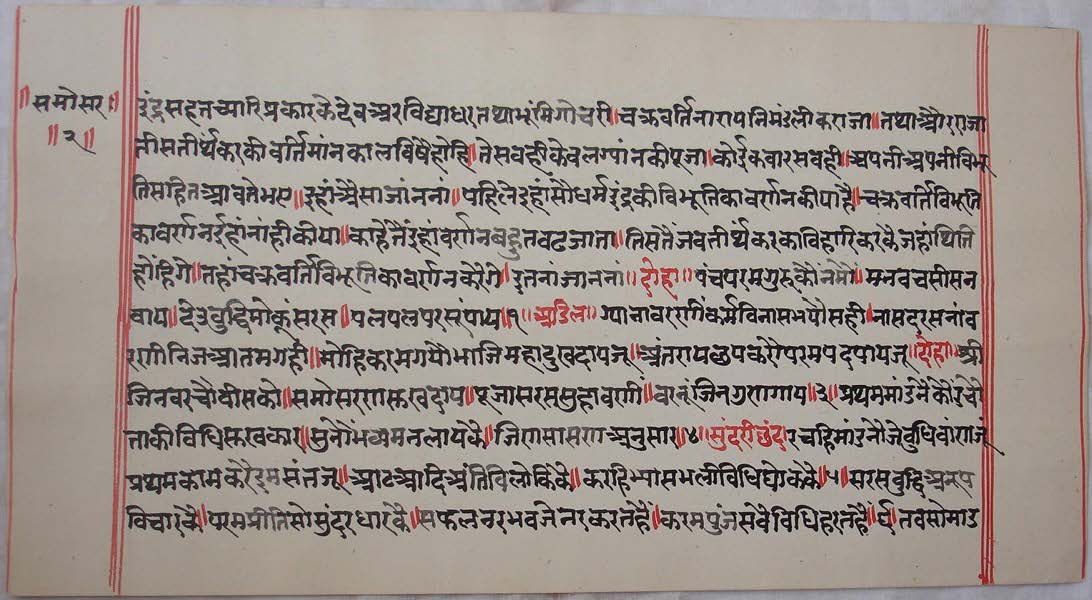 ॥समोसर॥
॥२॥
इंद्रसहतच्यारिप्रकारकेदेवअरविद्याधरतथाभूंमिगोचरी॥चक्रवर्तिनारायनिमंडलीकराजा॥तथाऔरराजा
तीसतीर्थंकरकीवर्तिमांनकालविषैहोहि॥तेसवहीकेवलग्यांनकीपूजा॥कोईकवारसवही॥अपनीअपनीविभू
तिसहितआवतेभए॥इहांऐसाजांननां॥पहिलेइहांसौधर्मइंद्रकीविभूतिकावर्णनकीयाहै॥चक्रवर्तिविभूति
कावर्णनइहांनांहीकीया॥काहेतैंइहांवर्णनबहुतवढजाता॥तिसतैजवतीर्थंकरकाविहारिकरकैजहांथिति
होंहिगे॥तहांचक्रवर्तिविभूतिकावर्णनकरैंगे॥इतनांजाननां॥दोहा॥पंचपरमगुरुकौंनमौं॥मनवचसीसन
वाय॥देउबुद्धिमोकूंसरस॥पलपलपरसूंपाय॥१॥अडिल॥ग्यानावरणींकर्मविनासभयौसही॥नासदरसनांव
रणीनिजआतमगही॥मोहिकरमगयौभाजिमहादुखदायजू॥अंतरायछयकरौपरमपदपायजू॥दोहा॥श्री
जिनवरचौवीसको॥समोसरणसुखदाय॥पूजासरससुहावणीं॥वरनूंजिनगुणगाय॥३॥प्रथममांडनैंकौरचौ
ताकीविधिसुखकार॥सुनौंभव्यमनलायकै॥जिणसासणअनुसार॥४॥सुंदरीछंद॥रचहिमांडनौजेवुधिवांणजू
प्रथमकामकरैइमसंतजू॥आढआदिअंतिविलोकिकै॥करहिभ्यासभलीविधिघोककै॥५॥सरसवुद्धिअनूप
विचारकै॥परमप्रीतिसोसुंदरधारकै॥सफलनरभवजेनरकरतहैं॥करमपुंजसवैविधिहरतहैं॥६॥तवसोमाड